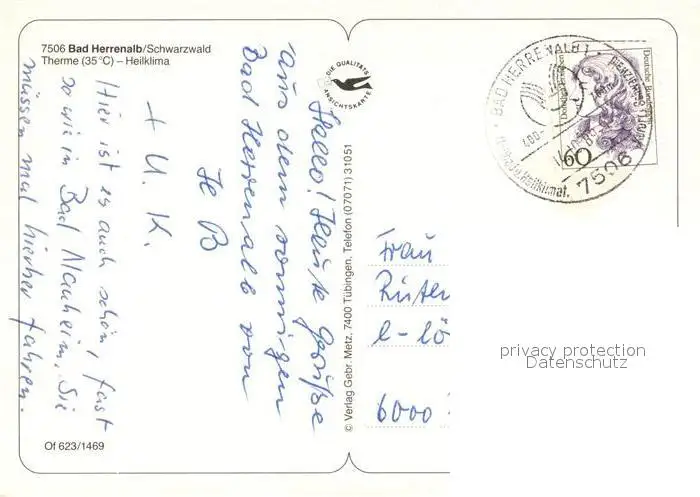 7506 Bad Herrenalb/Schwarzwald
Therme (35°C) – Heilklima
Hallo! Heute Grüße
aus dem sonnigen
Bad Herrenalb von
+ U. K.
Hier ist es auch schön, fast
so wie in Bad Nauheim. Sie
müssen mal hierher fahren.
Of 623/1469
DIE QUALITÄTS
ANSICHTSKARTE
© Verlag Gebr. Metz, 7400 Tübingen, Telefon (07071) 31051
BAD HERRENALB 1
7506
60
Deutsche Bundespost
Frau
6000
privacy protection
Datenschutz